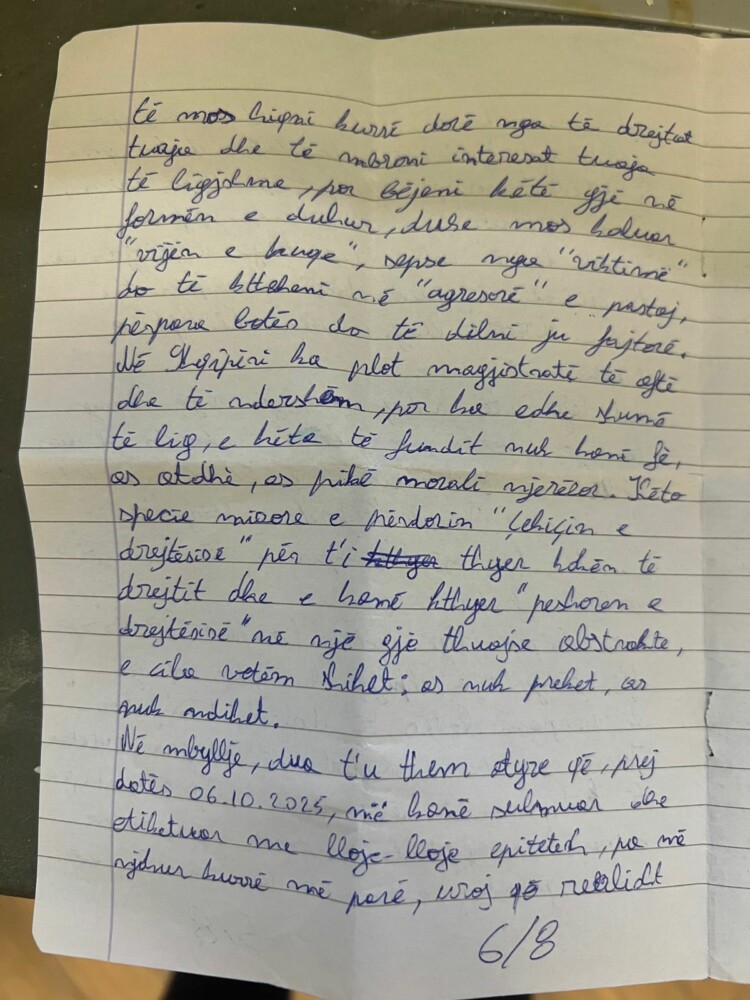 të mos hiqni kurrë dorë nga të drejtat
tuaja dhe të mbroni interesat tuaja
të ligjshme, por bëjeni këtë gjë në
formën e duhur, duke mos kaluar
"vijën e kuqe", sepse nga "viktimë"
do të ktheheni në "agresorë" e pastaj,
përpara botës do të dilni ju fajtorë.
Në Shqipëri ka plot magjistratë të aftë
dhe të ndershëm, por ka edhe shumë
të lig, e këta të fundit nuk kanë fè,
as atdhè, as pikë morali njerëzor. Këto
specie mizore e përdorin "Çekiçin e
drejtësisë" për t'i thyer kokën të
drejtit dhe e kanë kthyer "peshoren e
drejtësisë" në një gjë thuajse abstrakte,
e cila vetëm shihet; as nuk preket, as
nuk ndihet.
Në mbyllje, dua t'u them atyre që, prej
datës 06.10.2025, më kanë sulmuar dhe
etiketuar me lloje-lloje epitetesh, pa më
njohur kurrë më parë, uroj që realiteti
6/8